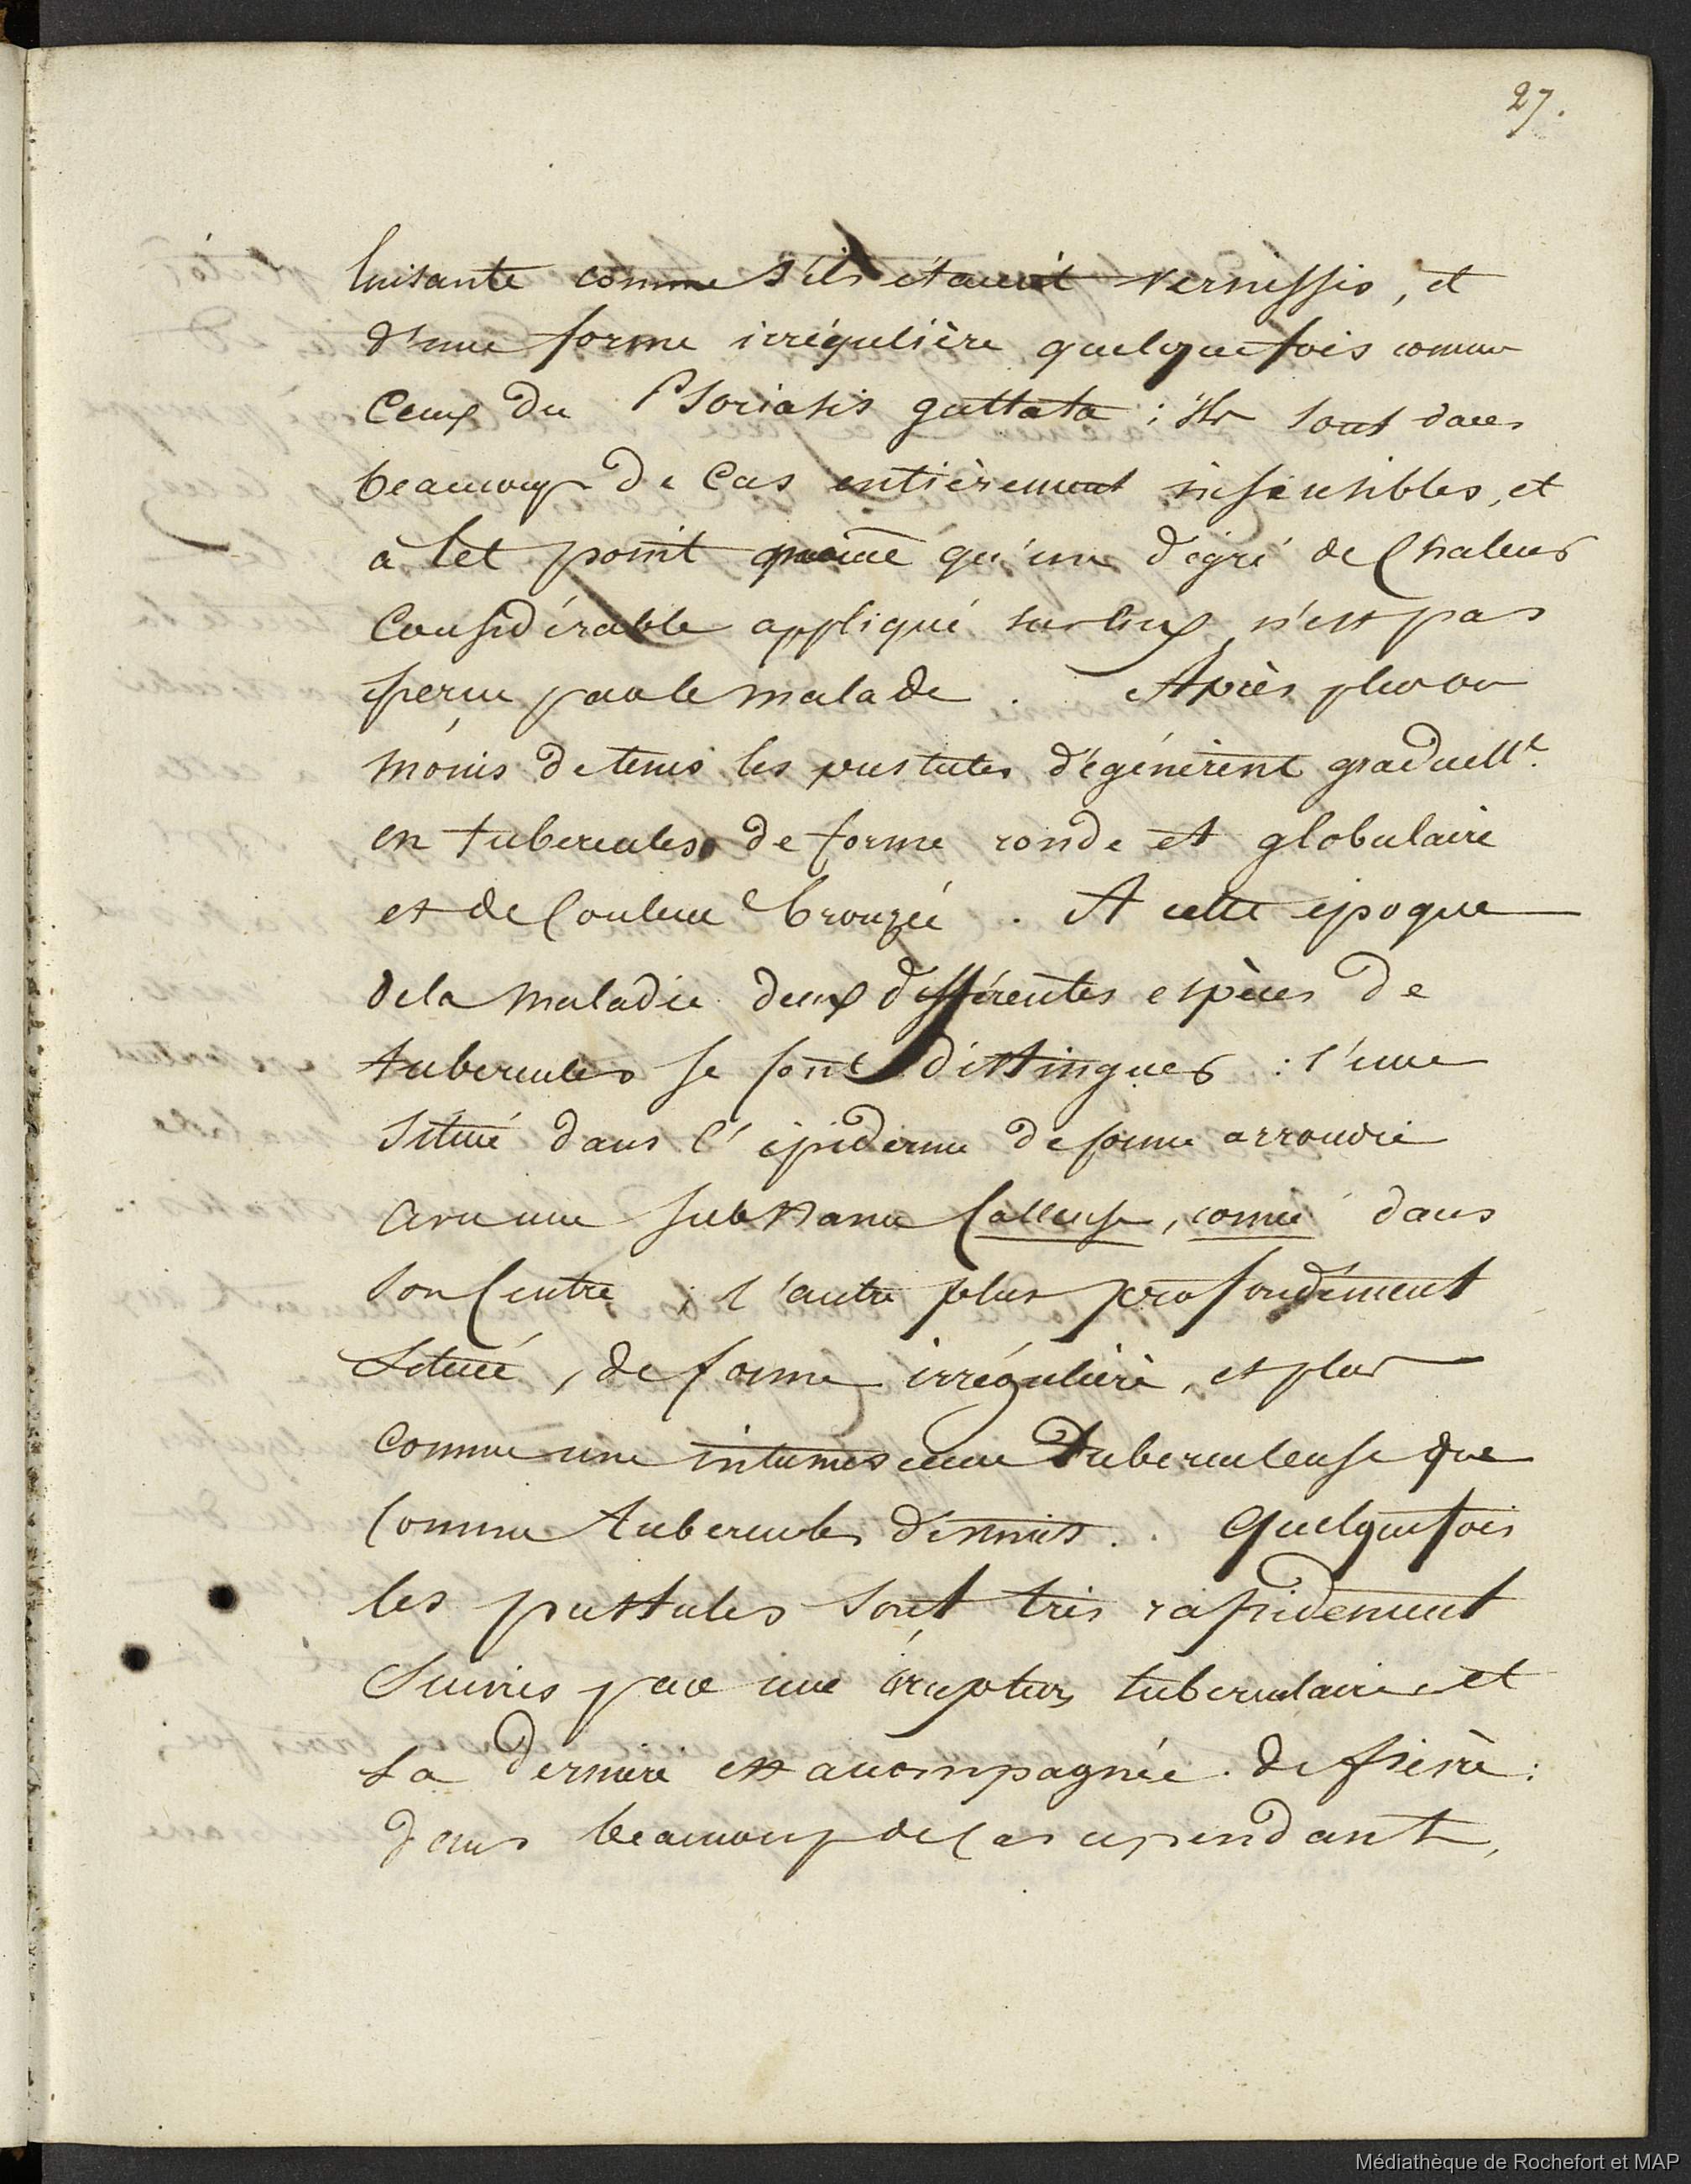 27.
luisante comme s'ils étaient vernissés, et
d'une forme irrégulière quelquefois comme
ceux du Psoriasis guttata ; ils sont dans
beaucoup de Cas entièrement insensibles, et
à tel point même qu'un dégré de Chaleur
Considérable appliqué sur eux, n'est pas
perçu par le malade. Après plus ou
moins de tems, les pustules dégénèrent graduellt.
en tubercules de forme ronde et globulaire
et de Couleur bronzée. A cette époque
de la maladie deux différentes espèces de
tubercules se font distinguer : l'une
située dans l'épiderme de forme arrondie
avec une substance Calleuse, cornée dans
son Centre ; l'autre plus profondément
située, de forme irrégulière, et plus
comme une intumescence tuberculeuse que
Comme tubercules désunis. Quelquefois
les pustules sont très rapidement
suivies par une éruption tuberculaire et
la dernière est accompagnée de fièvre :
dans beaucoup de Cas cependant,
Médiathèque de Rochefort et MAP